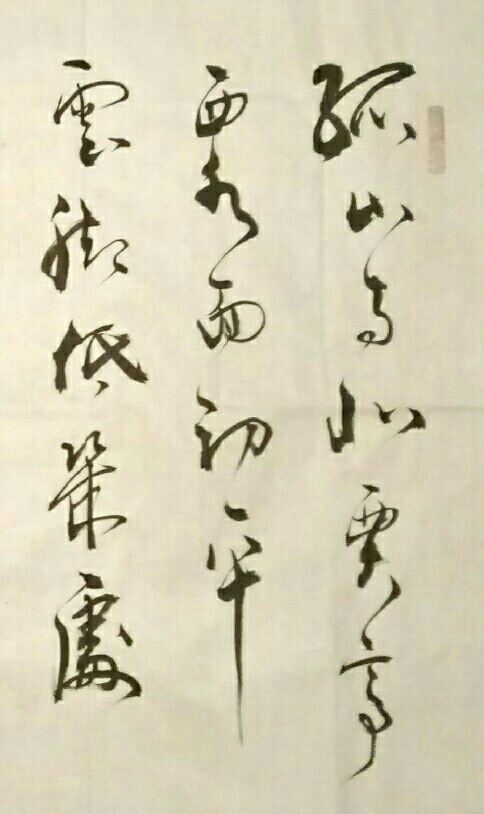 孤山寺北賈亭
西水面初平
雲腳低幾處